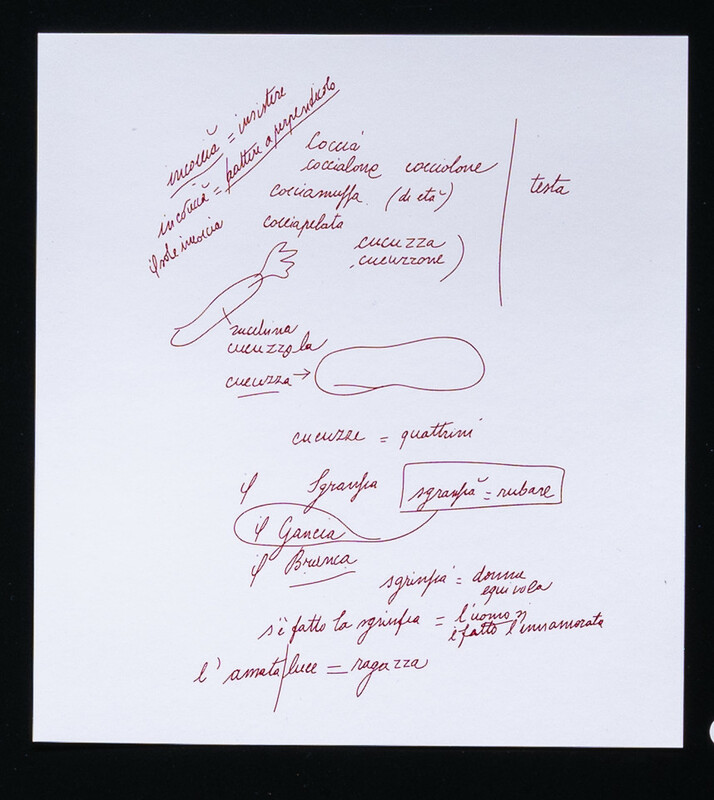 incoccià = insistere
incoccià = battere a perpendicolo
il sole incoccia
Coccia
coccialone cocciolone
cocciamuffa (di età)
cocciapelata
cucuzza
cucuzzone
testa
zucchina
cucuzzola
cucuzza →
cucuzze = quattrini
Sgranfia
sgranfià = rubare
Gancia
Branca
sgrinfia = donna
equivola
s'è fatto la sgrinfia = l'uomo si
è fatto l'innamorata
l'amata luce = ragazza